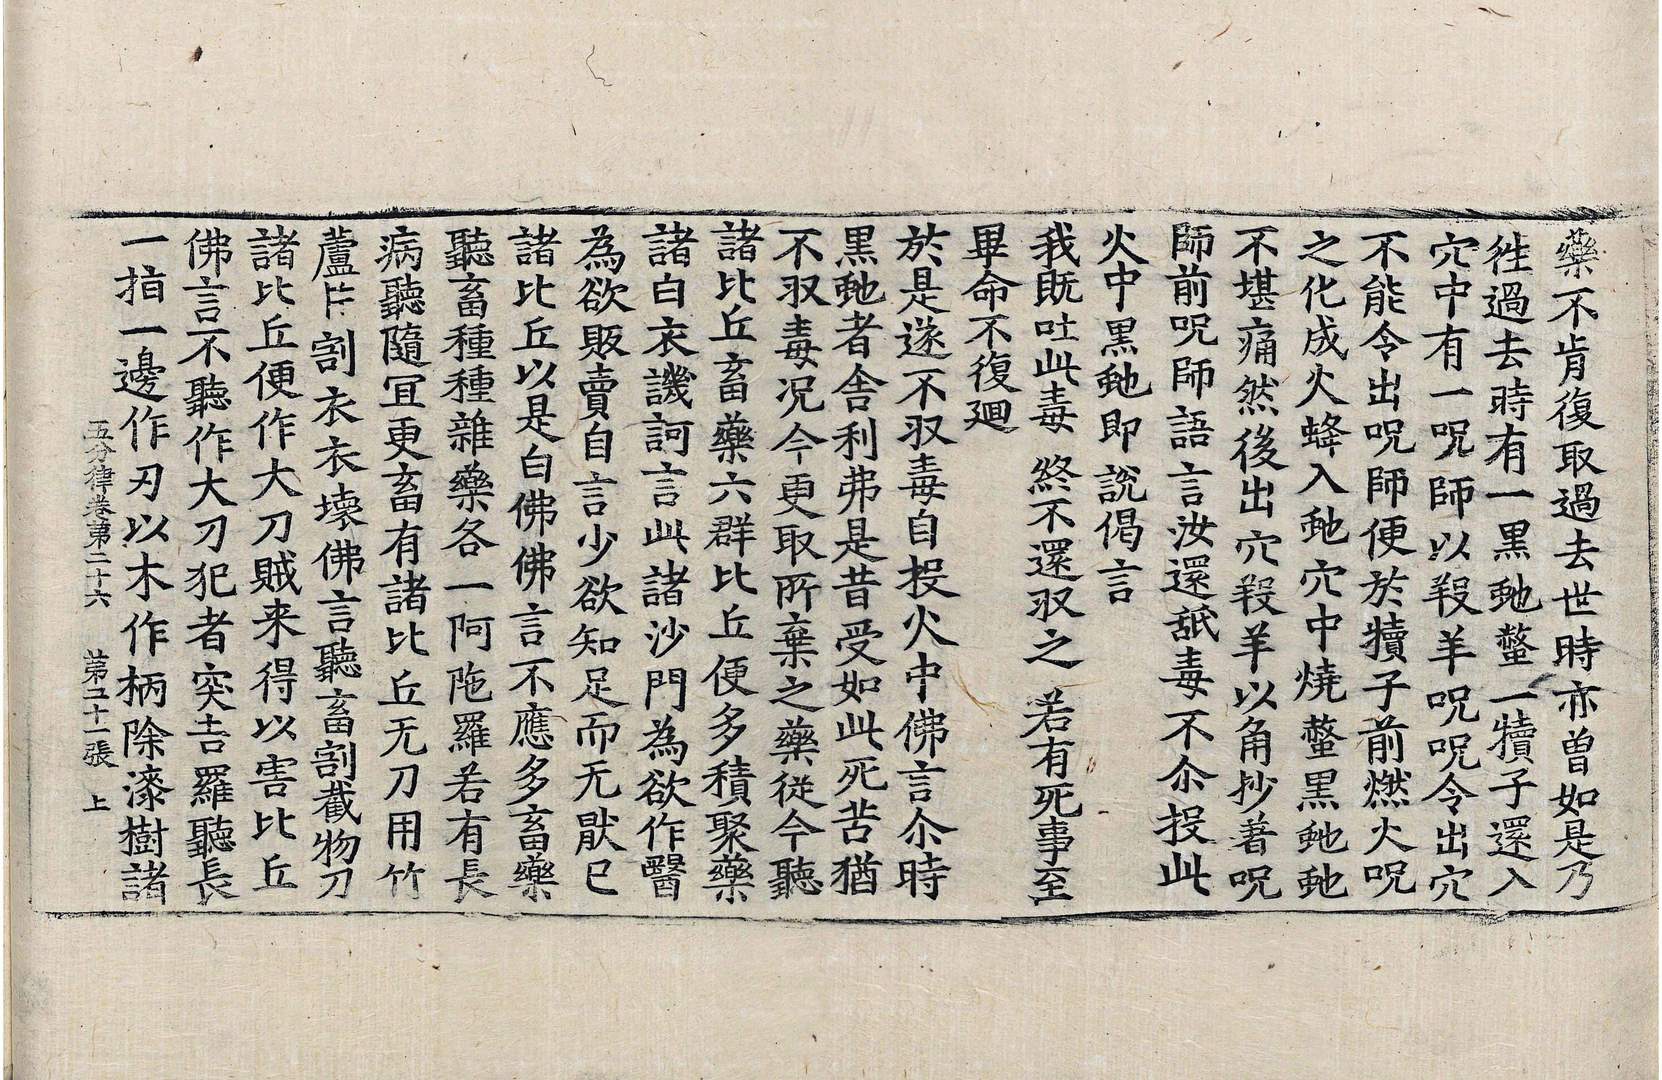 藥不肯復取過去世時亦曾如是乃
徃過去時有一黒虵螫一犢子還入
穴中有一呪師以羖羊呪呪令出穴
不能令出呪師便於犢子前燃火呪
之化成火蜂入虵穴中燒螫黒虵虵
不堪痛然後出穴羖羊以角抄著呪
師前呪師語言汝還舐毒不尒投此
火中黒虵即說偈言
我既吐此毒 終不還収之 若有死事至
畢命不復廻
於是遂不収毒自投火中佛言尒時
黒虵者舎利弗是昔受如此死苦猶
不収毒况今更取所棄之藥從今聽
諸比丘畜藥六群比丘便多積聚藥
諸白衣譏訶言此諸沙門為欲作醫
為欲販賣自言少欲知足而无猒已
諸比丘以是白佛佛言不應多畜藥
聽畜種種雜藥各一阿陁羅若有長
病聽隨冝更畜有諸比丘无刀用竹
蘆片割衣衣壊佛言聽畜割截物刀
諸比丘便作大刀賊来得以害比丘
佛言不聽作大刀犯者突吉羅聽長
一指一邊作刃以木作柄除漆樹諸
五分律卷第二十六 第二十一張 上